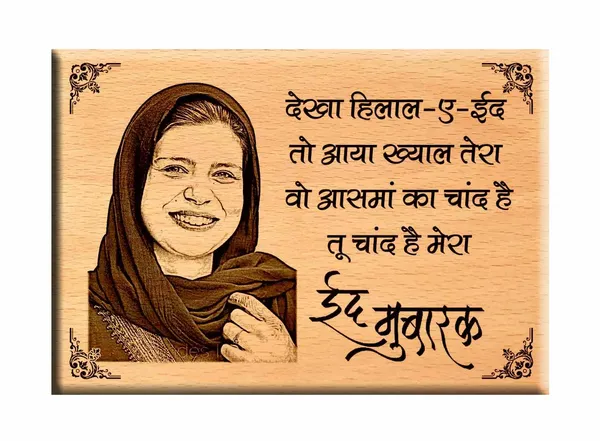 देखा हिलाल-ए-ईद
तो आया ख्याल तेरा
वो आसमां का चांद है
तू चांद है मेरा
ईद मुबारक